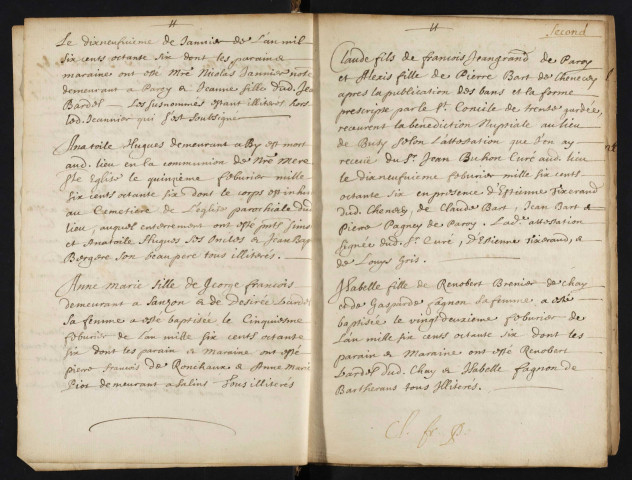 Le dixneufuieme de Jannier de l'an mil
six cents octante six dont les parain &
maraine ont esté Mre Nicolas Jannier notre
demeurant a Paroy & Jeanne fille dud. Jea
Bardel Les susnommés estant illiterés hors
led. Jeannier qui s'est soubsigné
Anatoile Hugues demeurant a By est mort
aud. lieu en la communion de Nre Mere
Ste Eglise le quinzieme feburier mille
six cents octante six dont le corps est inhu
au Cemetiere de l'eglise parochiale dud
lieu, auquel enterrement ont esté pnts Simo
et Anatoile Hugues ses oncles & Jean Bap
Bergere son beau pere tous illiterés.
Anne Marie fille de George francois
demeurant a Sanzon & de Desirée Bardel
sa femme a esté baptisée le Cinquieme
feburier de l'an mille six cents octante
six dont les parain & Maraine ont esté
piere francois de Ronchaux & Anne Marie
Piot demeurant a Salins tous illiterés
Second
Claude fils de francois Jeangrand de Paroy
et Alexis fille de Pierre Bart de Chenecey
apres la publication des bans et la forme
prescripte par le St. Concile de trente gardée,
receurent la benediction Nuptiale au lieu
de Busy selon l'attestation que j'en ay
receue du Sr. Jean Buhon Curé aud. lieu
le dixneufuieme feburier mille six cents
octante six en presence d'Estienne Sixerand
dud. Chenecey, de Claude Bart, Jean Bart &
Piere Pagney de Paroy. Lad. attestation
signée dud. Sr. Curé, d'Estienne Sixerand, &
de Louys Gris.
Ysabelle fille de Renobert Brenier de Chay
et de Gasparde fagnon sa femme a esté
baptisée le vingt deuxieme feburier de
l'an mille six cents octante six dont les
parain & Maraine ont esté Renobert
Bardel dud. Chay & Ysabelle fagnon de
Bartherans tous illiterés.